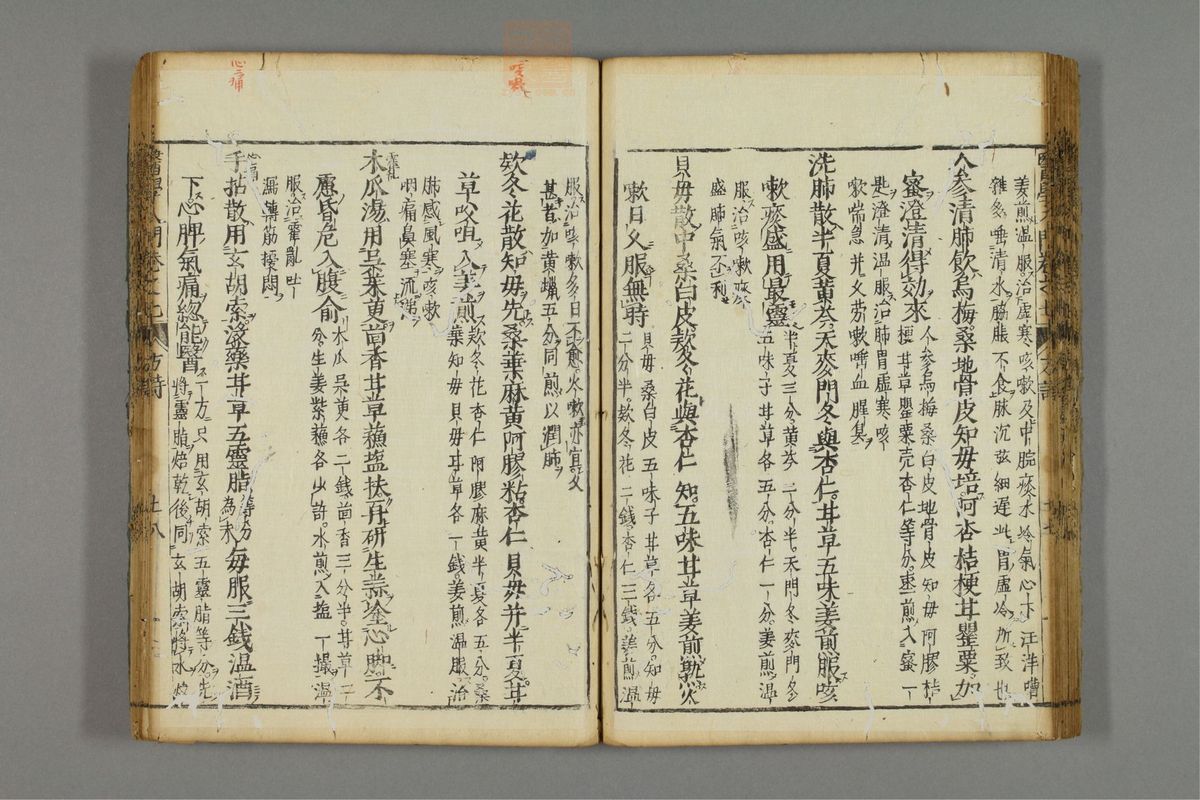 姜煎温服治虚寒咳嗽及中脘痰水冷氣心下汪洋嘈
雜多唾清水脇脹不食脉沉弦細遅此胃虚冷所致也
人参清肺飲烏梅桑地骨皮知毋培阿杏桔梗甘罌粟加
蜜澄清得効來
人參烏梅桑白皮地骨皮知毋阿膠桔
梗甘草罌粟壳杏仁等分棗煎入蜜一
匙澄清温服治肺胃虚寒咳
嗽喘急并久劳嗽唾血腥臭
洗肺散半夏黄芩天麥門冬與杏仁甘草五味姜煎服咳
嗽痰盛用最靈
半夏三分黄芩二分半天門冬麥門冬
五味子甘草各五分杏仁一分姜煎温
服治咳嗽痰
盛肺氣不利
貝毋散中桑白皮欵冬花與杏仁知五味甘草姜煎熟火
嗽日久服無時
貝毋桑白皮五味子甘草各五分知毋
二分半欵冬花二錢杏仁三錢姜煎温
服治咳嗽多日不愈火嗽亦宜久
甚者加黄蠟五分同煎以潤肺
欵冬花散知毋先桑葉麻黄阿膠粘杏仁貝毋并半夏甘
草㕮咀入姜煎
欵冬花杏仁阿膠麻黄半夏各五分桑
葉知毋貝毋甘草各一錢姜煎温服治
肺感風寒咳嗽
咽痛鼻塞流涕
霍乱
木瓜湯用吴茱萸茴香甘草蘇塩扶再研生蒜塗心脚不
慮昏危入腹俞
木瓜吳萸各二錢茴香三分半甘草二
分生姜紫蘇各少許水煎入塩一撮温
服治霍亂吐
瀉藥筋擾悶
心痛
手拈散用玄胡索没藥甘草五靈脂
等分
為末
每服三錢温酒
下心脾氣痛總能醫
一方只用玄胡索五靈脂等分先
將靈脂焙乾後同玄胡索將水炒
方詩
心痛